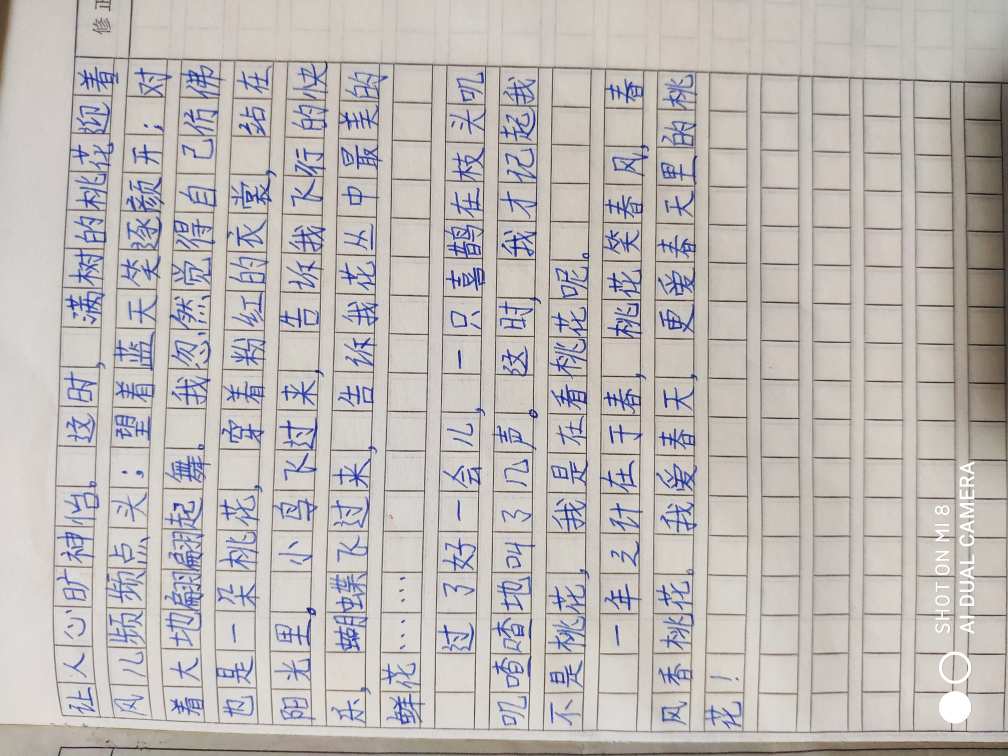 让人心旷神怡。这时，满树的桃花迎着
风儿频频点头；望着蓝天笑逐颜开；对
着大地翩翩起舞。我忽然觉得自己仿佛
也是一朵桃花，穿着粉红的衣裳，站在
阳光里。小鸟飞过来，告诉我飞行的快
乐，蝴蝶飞过来，告诉我花丛中最美的
鲜花……
过了好一会儿，一只喜鹊在枝头叽
叽喳喳地叫了几声。这时，我才记起我
不是桃花，我是在看桃花呢。
一年之计在于春，桃花笑春风，春
风香桃花。我爱春天，更爱春天里的桃
花！
修正
SHOT ON MI 8
AI DUAL CAMERA